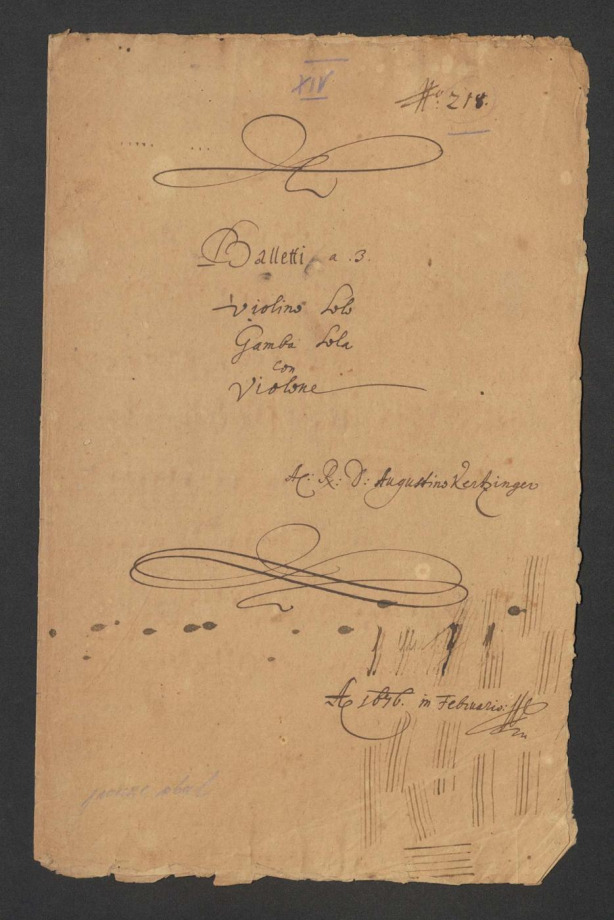 XIV
No: 218.
Balletti a .3.
Violino Solo
Gamba Sola
con
Violone
A: R: D: Augustino Kertzinger
A 1676. in Februario